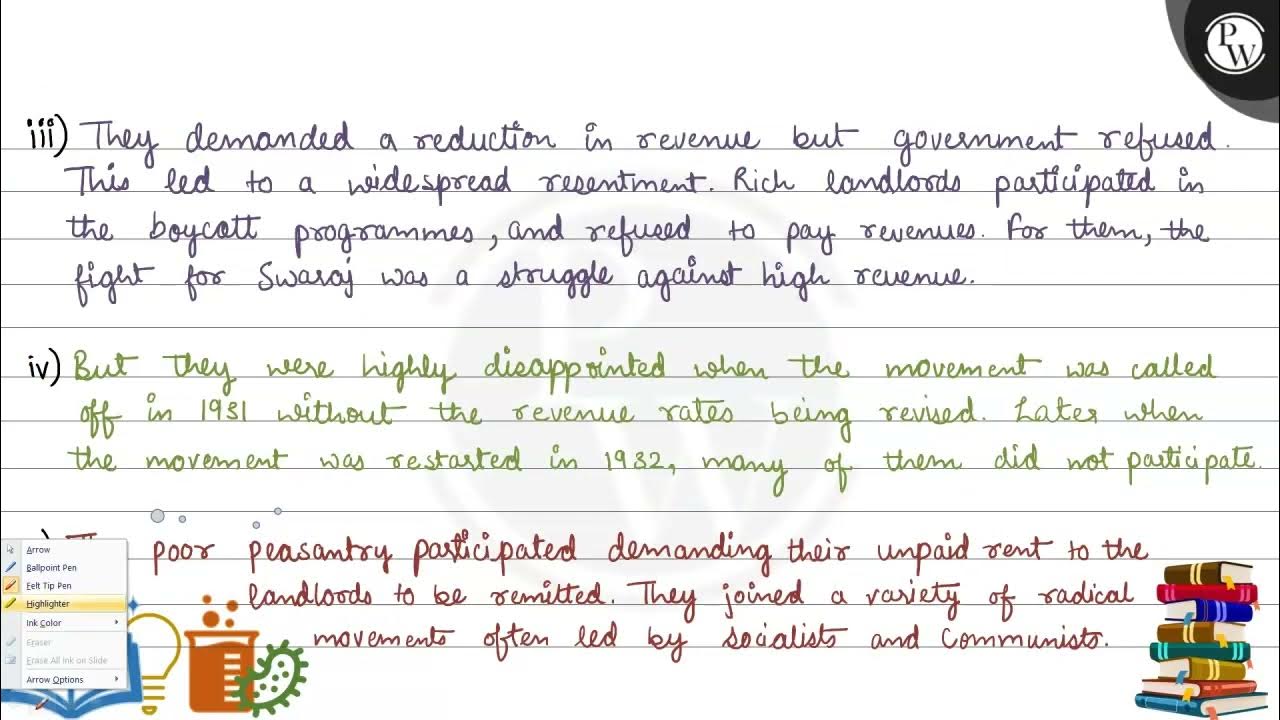 PW
iii) They demanded a reduction in revenue but government refused.
This led to a widespread resentment. Rich landlords participated in
the boycott programmes, and refused to pay revenues. For them, the
fight for Swaraj was a struggle against high revenue.
iv) But they were highly disappointed when the movement was called
off in 1931 without the revenue rates being revised. Later when
the movement was restarted in 1932, many of them did not participate.
poor peasantry participated demanding their unpaid rent to the
landlords to be remitted. They joined a variety of radical
movements often led by socialists and Communists.
Arrow
Ballpoint Pen
Felt Tip Pen
Highlighter
Ink Color
Eraser
Erase All Ink on Slide
Arrow Options